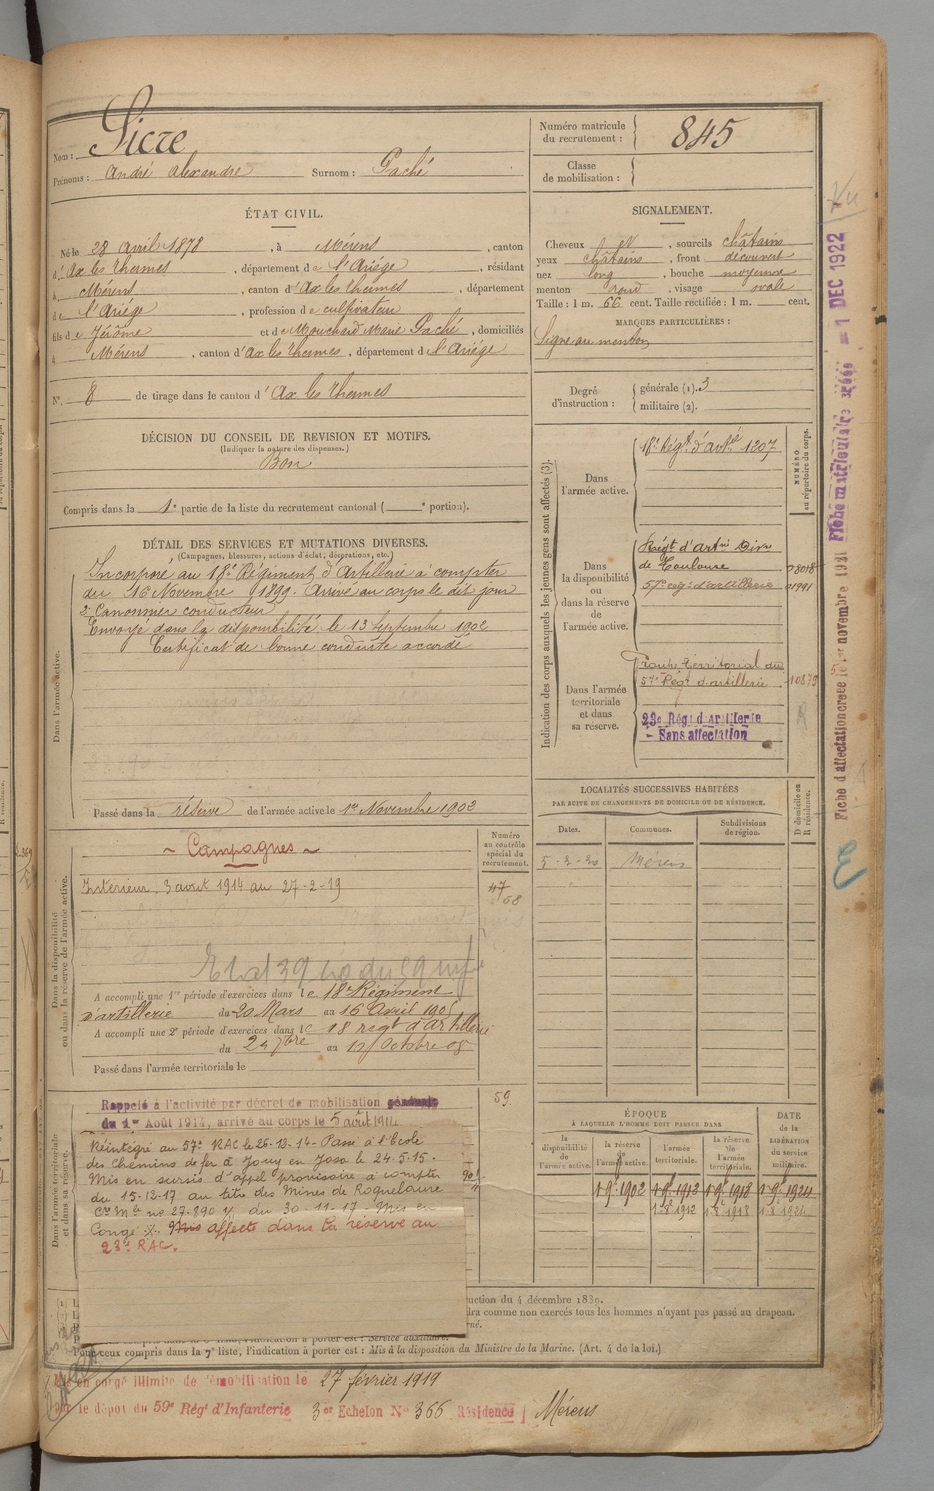 Nom : Sicre
Prénoms : André Alexandre Surnom : Gaché
Numéro matricule du recrutement : 845
Classe de mobilisation :
ÉTAT CIVIL.
Né le 28 Avril 1878, à Mérens, canton
d'Ax les Thermes, département de l'Ariége, résidant
à Mérens, canton d'Ax les thermes, département
de l'Ariége, profession de cultivateur
fils de Jérôme et de Mouchard Marie Gaché, domiciliés
à Mérens, canton d'Ax les Thermes, département de l'Ariége
N° 8 de tirage dans le canton d'Ax les Thermes
SIGNALEMENT.
Cheveux et, sourcils châtains
yeux châtains, front découvert
nez long, bouche moyenne
menton rond, visage ovale
Taille : 1 m. 66 cent. Taille rectifiée : 1 m. cent.
MARQUES PARTICULIÈRES :
Signe au menton
Degré d'instruction : générale (1). 3
militaire (2).
DÉCISION DU CONSEIL DE REVISION ET MOTIFS.
(Indiquer la nature des dispenses.)
Bon
Compris dans la 1e partie de la liste du recrutement cantonal ( e portion).
DÉTAIL DES SERVICES ET MUTATIONS DIVERSES.
(Campagnes, blessures, actions d'éclat, décorations, etc.)
Dans l'armée active.
Incorporé au 18e Régiment d'Artillerie à compter
du 16 Novembre 1899. Arrivé au corps le dit jour
2e Canonnier conducteur
Envoyé dans la disponibilité le 13 Septembre 1902
Certificat de bonne conduite accordé
Passé dans la réserve de l'armée active le 1er Novembre 1902
Indication des corps auxquels les jeunes gens sont affectés (3).
NUMÉRO au répertoire du corps.
Dans l'armée active.
18e Régt d'artie 1207
Dans la disponibilité ou dans la réserve de l'armée active.
Régt d'artie Divre
de Toulouse
57e rég. d'artillerie
Dans l'armée territoriale et dans sa réserve.
Groupe territorial du
57e Régt d'artillerie 10879
23e Régt d'Artillerie
- Sans affectation
LOCALITÉS SUCCESSIVES HABITÉES
PAR SUITE DE CHANGEMENTS DE DOMICILE OU DE RÉSIDENCE.
D domicile ou R résidence.
Dates. Communes. Subdivisions de région.
5-2-20 Mérens
Dans la disponibilité ou dans la réserve de l'armée active.
Numéro au contrôle spécial du recrutement.
~ Campagnes ~
Intérieur. 3 août 1914 au 27-2-19
47
68
A accompli une 1re période d'exercices dans le 18e Régiment
d'artillerie du 20 Mars au 16 Avril 1905
A accompli une 2e période d'exercices dans le 18 régt d'artillerie
du 24 7bre au 12 Octobre 08
Passé dans l'armée territoriale le
Dans l'armée territoriale et dans sa réserve.
59
Rappelé à l'activité par décret de mobilisation générale
du 1er Août 1914, arrivé au corps le 5 août 1914
Réintégré au 57e RAC le 26-12-14 - Passé à l'Ecole
des Chemins de fer à Jouy en Josa le 24.5.15.
Mis en sursis d'appel provisoire à compter
du 15-12-17 au titre des Mines de Roquelaure
Ce Mle ne 27-890 y du 30-11-17 - Mis en
Congé Mis affecté dans la réserve au
23e RAC.
ÉPOQUE
À LAQUELLE L'HOMME DOIT PASSER DANS
la disponibilité de l'armée active. la réserve de l'armée active. l'armée territoriale. la réserve de l'armée territoriale.
DATE de la LIBÉRATION du service militaire.
1 9e 1902 1 9e 1912 1 9e 1918 1 9e 1924
1 8 1912 1 8 1918 1 8 1924
ruction du 4 décembre 1889.
dra comme non exercés tous les hommes n'ayant pas passé au drapeau.
Pour ceux compris dans la 7e liste, l'indication à porter est : Mis à la disposition du Ministre de la Marine. (Art. 4 de la loi.)
Mis en congé illimité de démobilisation le 27 février 1919
Par le dépôt du 59e Régt d'Infanterie 3er Echelon No 366 Résidence Mérens
Fiche d'affectation créée le 5er novembre 1921 Fiche matriculaire créée = 1 DEC 1922
Vu